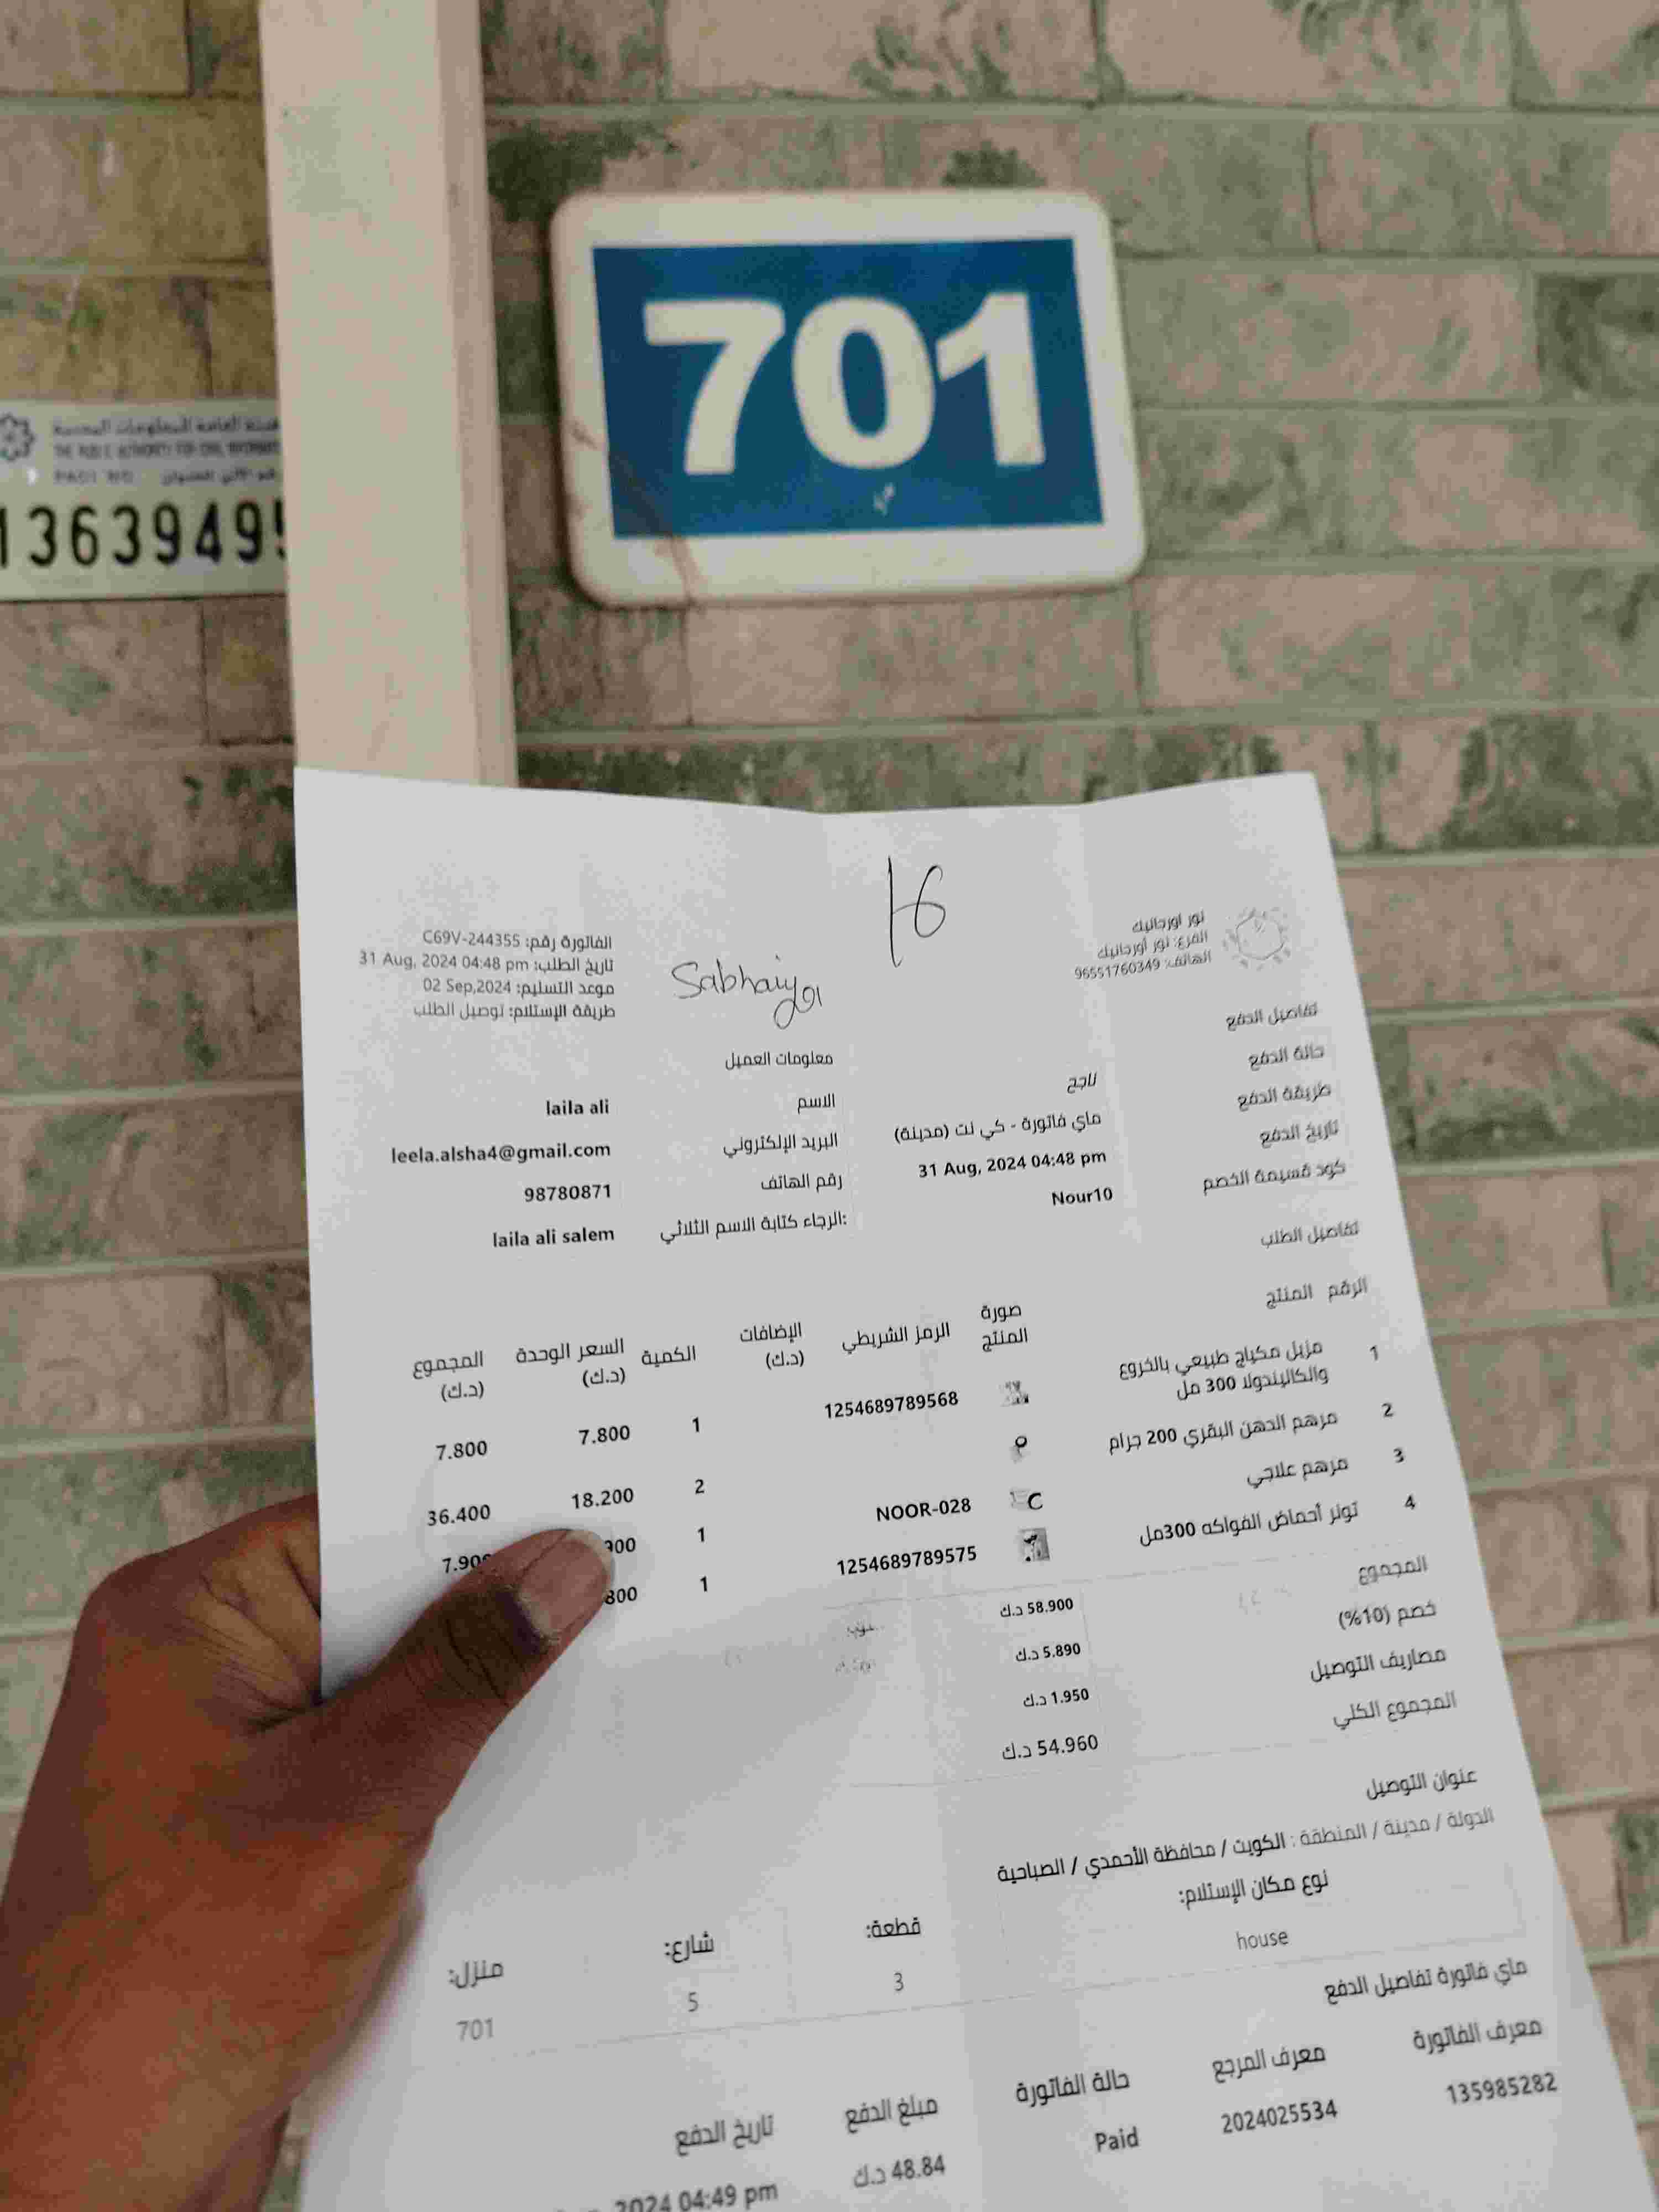 701
THE PUBLIC AUTHORITY FOR CIVIL
PACI NO
1363949
16
Sabhaiya
نور اورجانيك
الفرع: نور أورجانيك
الهاتف: 96551760349
الفاتورة رقم: C69V-244355
تاريخ الطلب: 31 Aug, 2024 04:48 pm
موعد التسليم: 02 Sep,2024
طريقة الإستلام: توصيل الطلب
تفاصيل الدفع
حالة الدفع ناجح
طريقة الدفع ماي فاتورة - كي نت (مدينة)
تاريخ الدفع 31 Aug, 2024 04:48 pm
كود قسيمة الخصم Nour10
معلومات العميل
الاسم laila ali
البريد الإلكتروني leela.alsha4@gmail.com
رقم الهاتف 98780871
الرجاء كتابة الاسم الثلاثي: laila ali salem
تفاصيل الطلب
الرقم المنتج صورة المنتج الرمز الشريطي الإضافات (د.ك) الكمية السعر الوحدة (د.ك) المجموع (د.ك)
1 مزيل مكياج طبيعي بالخروع والكاليندولا 300 مل 1254689789568 1 7.800 7.800
2 مرهم الدهن البقري 200 جرام 2 18.200 36.400
3 مرهم علاجي NOOR-028 1 900 7.900
4 تونر أحماض الفواكه 300مل 1254689789575 1 800
المجموع 58.900 د.ك
خصم (10%) 5.890 د.ك
مصاريف التوصيل 1.950 د.ك
المجموع الكلي 54.960 د.ك
عنوان التوصيل
الدولة / مدينة / المنطقة : الكويت / محافظة الأحمدي / الصباحية
نوع مكان الإستلام: قطعة: شارع: منزل:
house 3 5 701
ماي فاتورة تفاصيل الدفع
معرف الفاتورة معرف المرجع حالة الفاتورة مبلغ الدفع تاريخ الدفع
135985282 2024025534 Paid 48.84 د.ك 2024 04:49 pm